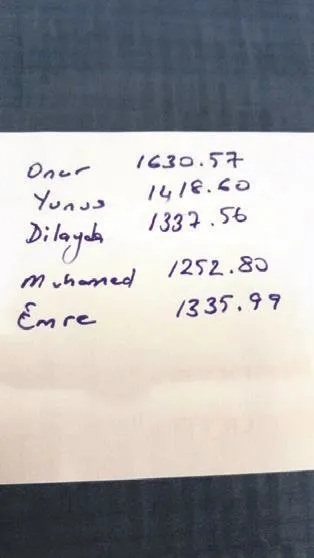 Onur 1630.57
Yunus 1418.60
Dilayda 1337.56
Muhamed 1252.80
Emre 1335.99